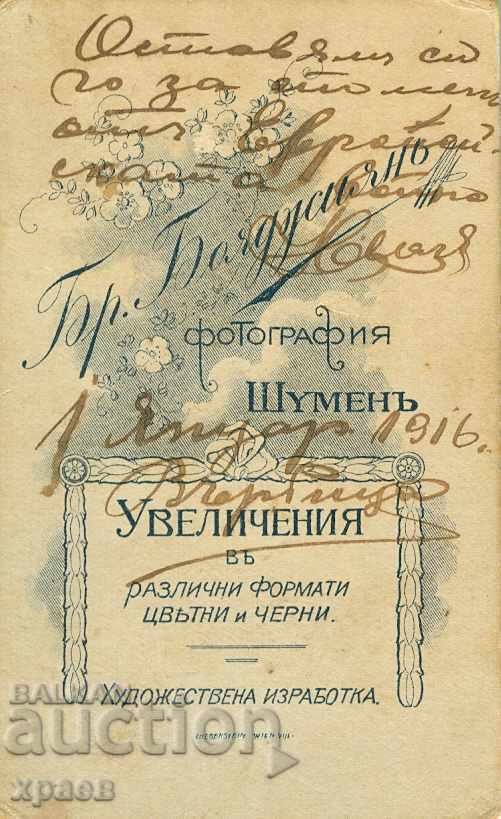 Оставям си
го за спомен
отъ Европей-
ската война
Бр. Боядусиянъ
ФОТОГРАФИЯ
ШУМЕНЪ
1 Януар 1916.
УВЕЛИЧЕНИЯ
ВЪ
РАЗЛИЧНИ ФОРМАТИ
ЦВѢТНИ и ЧЕРНИ.
ХУДОЖЕСТВЕНА ИЗРАБОТКА.
WIEN VIII.
BALKAN
auction
храев